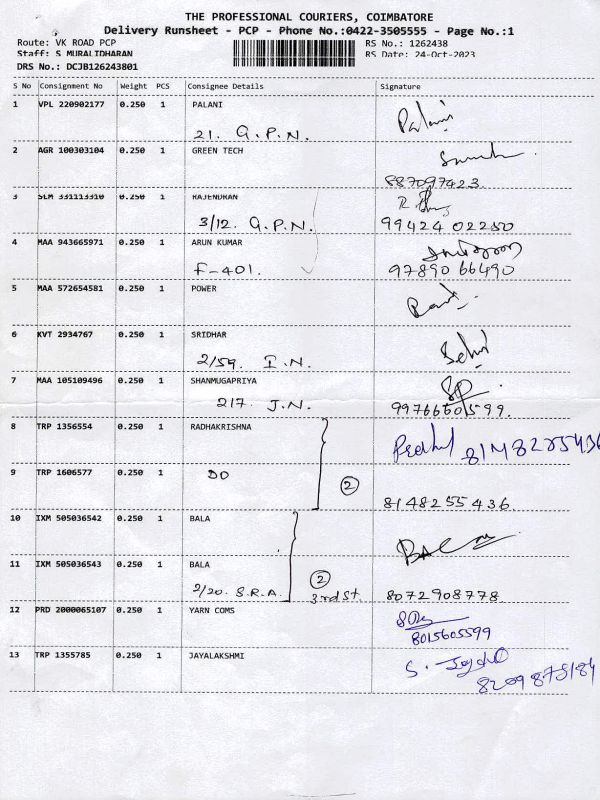 THE PROFESSIONAL COURIERS, COIMBATORE
Delivery Runsheet - PCP - Phone No.:0422-3505555 - Page No.:1
Route: VK ROAD PCP RS No.: 1262438
Staff: S MURALIDHARAN RS Date: 24-Oct-2023
DRS No.: DCJB126243801
S No Consignment No Weight PCS Consignee Details Signature
1 VPL 220902177 0.250 1 PALANI Palani
21. G.P.N.
2 AGR 100303104 0.250 1 GREEN TECH
887097423.
3 SLM 331113310 0.250 1 RAJENDRAN
3/12. G.P.N. 99424 02250
4 MAA 943665971 0.250 1 ARUN KUMAR
F-401. 97890 66490
5 MAA 572654581 0.250 1 POWER
6 KVT 2934767 0.250 1 SRIDHAR
2/59. I.N.
7 MAA 105109496 0.250 1 SHANMUGAPRIYA SP
217. J.N. 9976660599.
8 TRP 1356554 0.250 1 RADHAKRISHNA
9 TRP 1606577 0.250 1 DO 2
8148255436.
10 IXM 505036542 0.250 1 BALA BALA
11 IXM 505036543 0.250 1 BALA 2
2/20. S.R.A. 3rd St. 8072908778
12 PRD 2000065107 0.250 1 YARN COMS
8015605599
13 TRP 1355785 0.250 1 JAYALAKSHMI